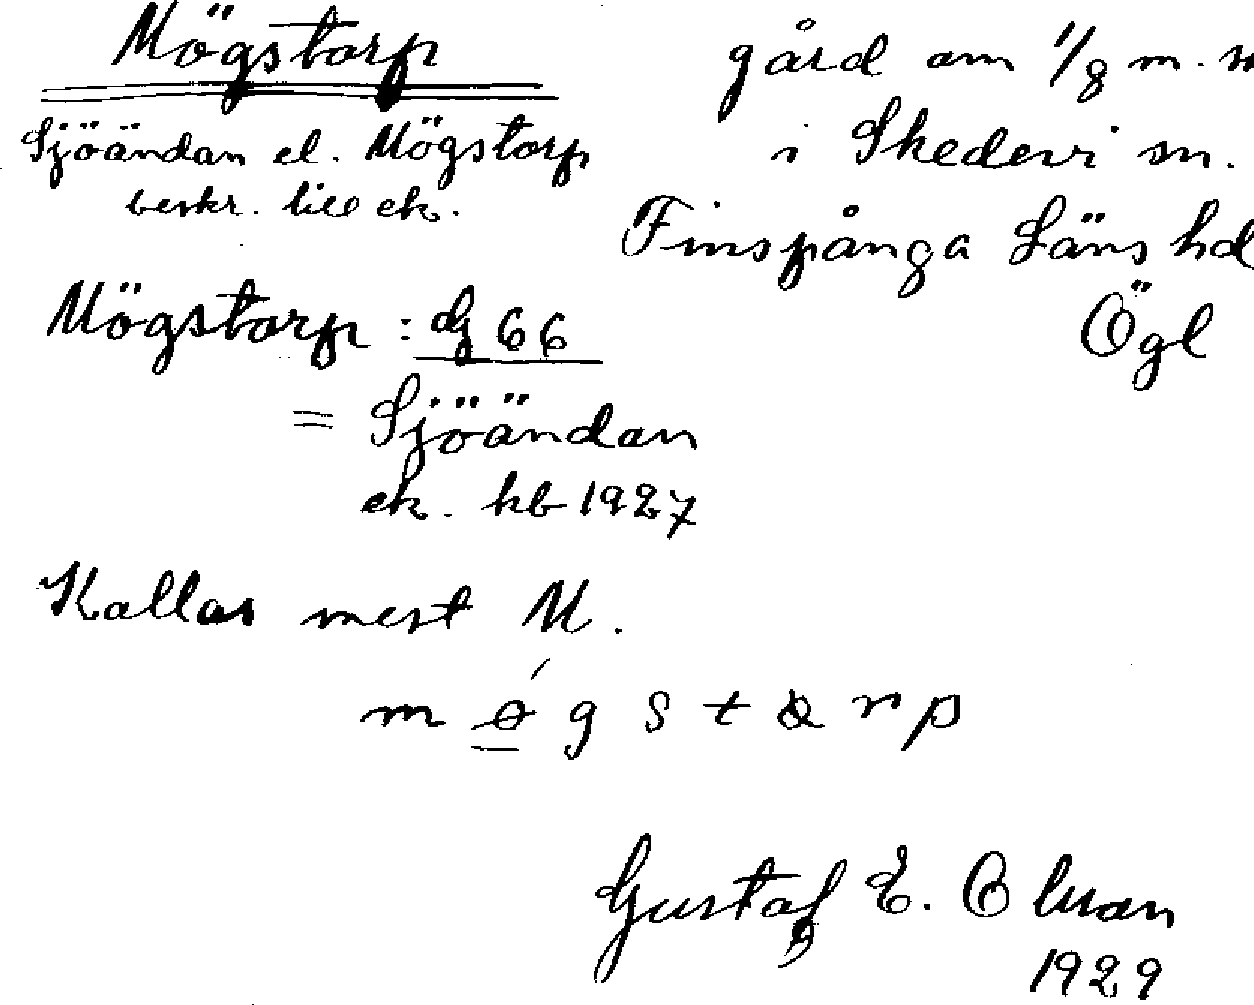 Mögstorp
gård om 1/8 m. m
Sjöändan el. Mögstorp
i Skedevi sn.
beskr. till ek.
Finspånga Läns hd
Mögstorp : G 66
Ögl
= Sjöändan
ek. kb 1927
Kallas mest M.
Gustaf E. Olman
1929